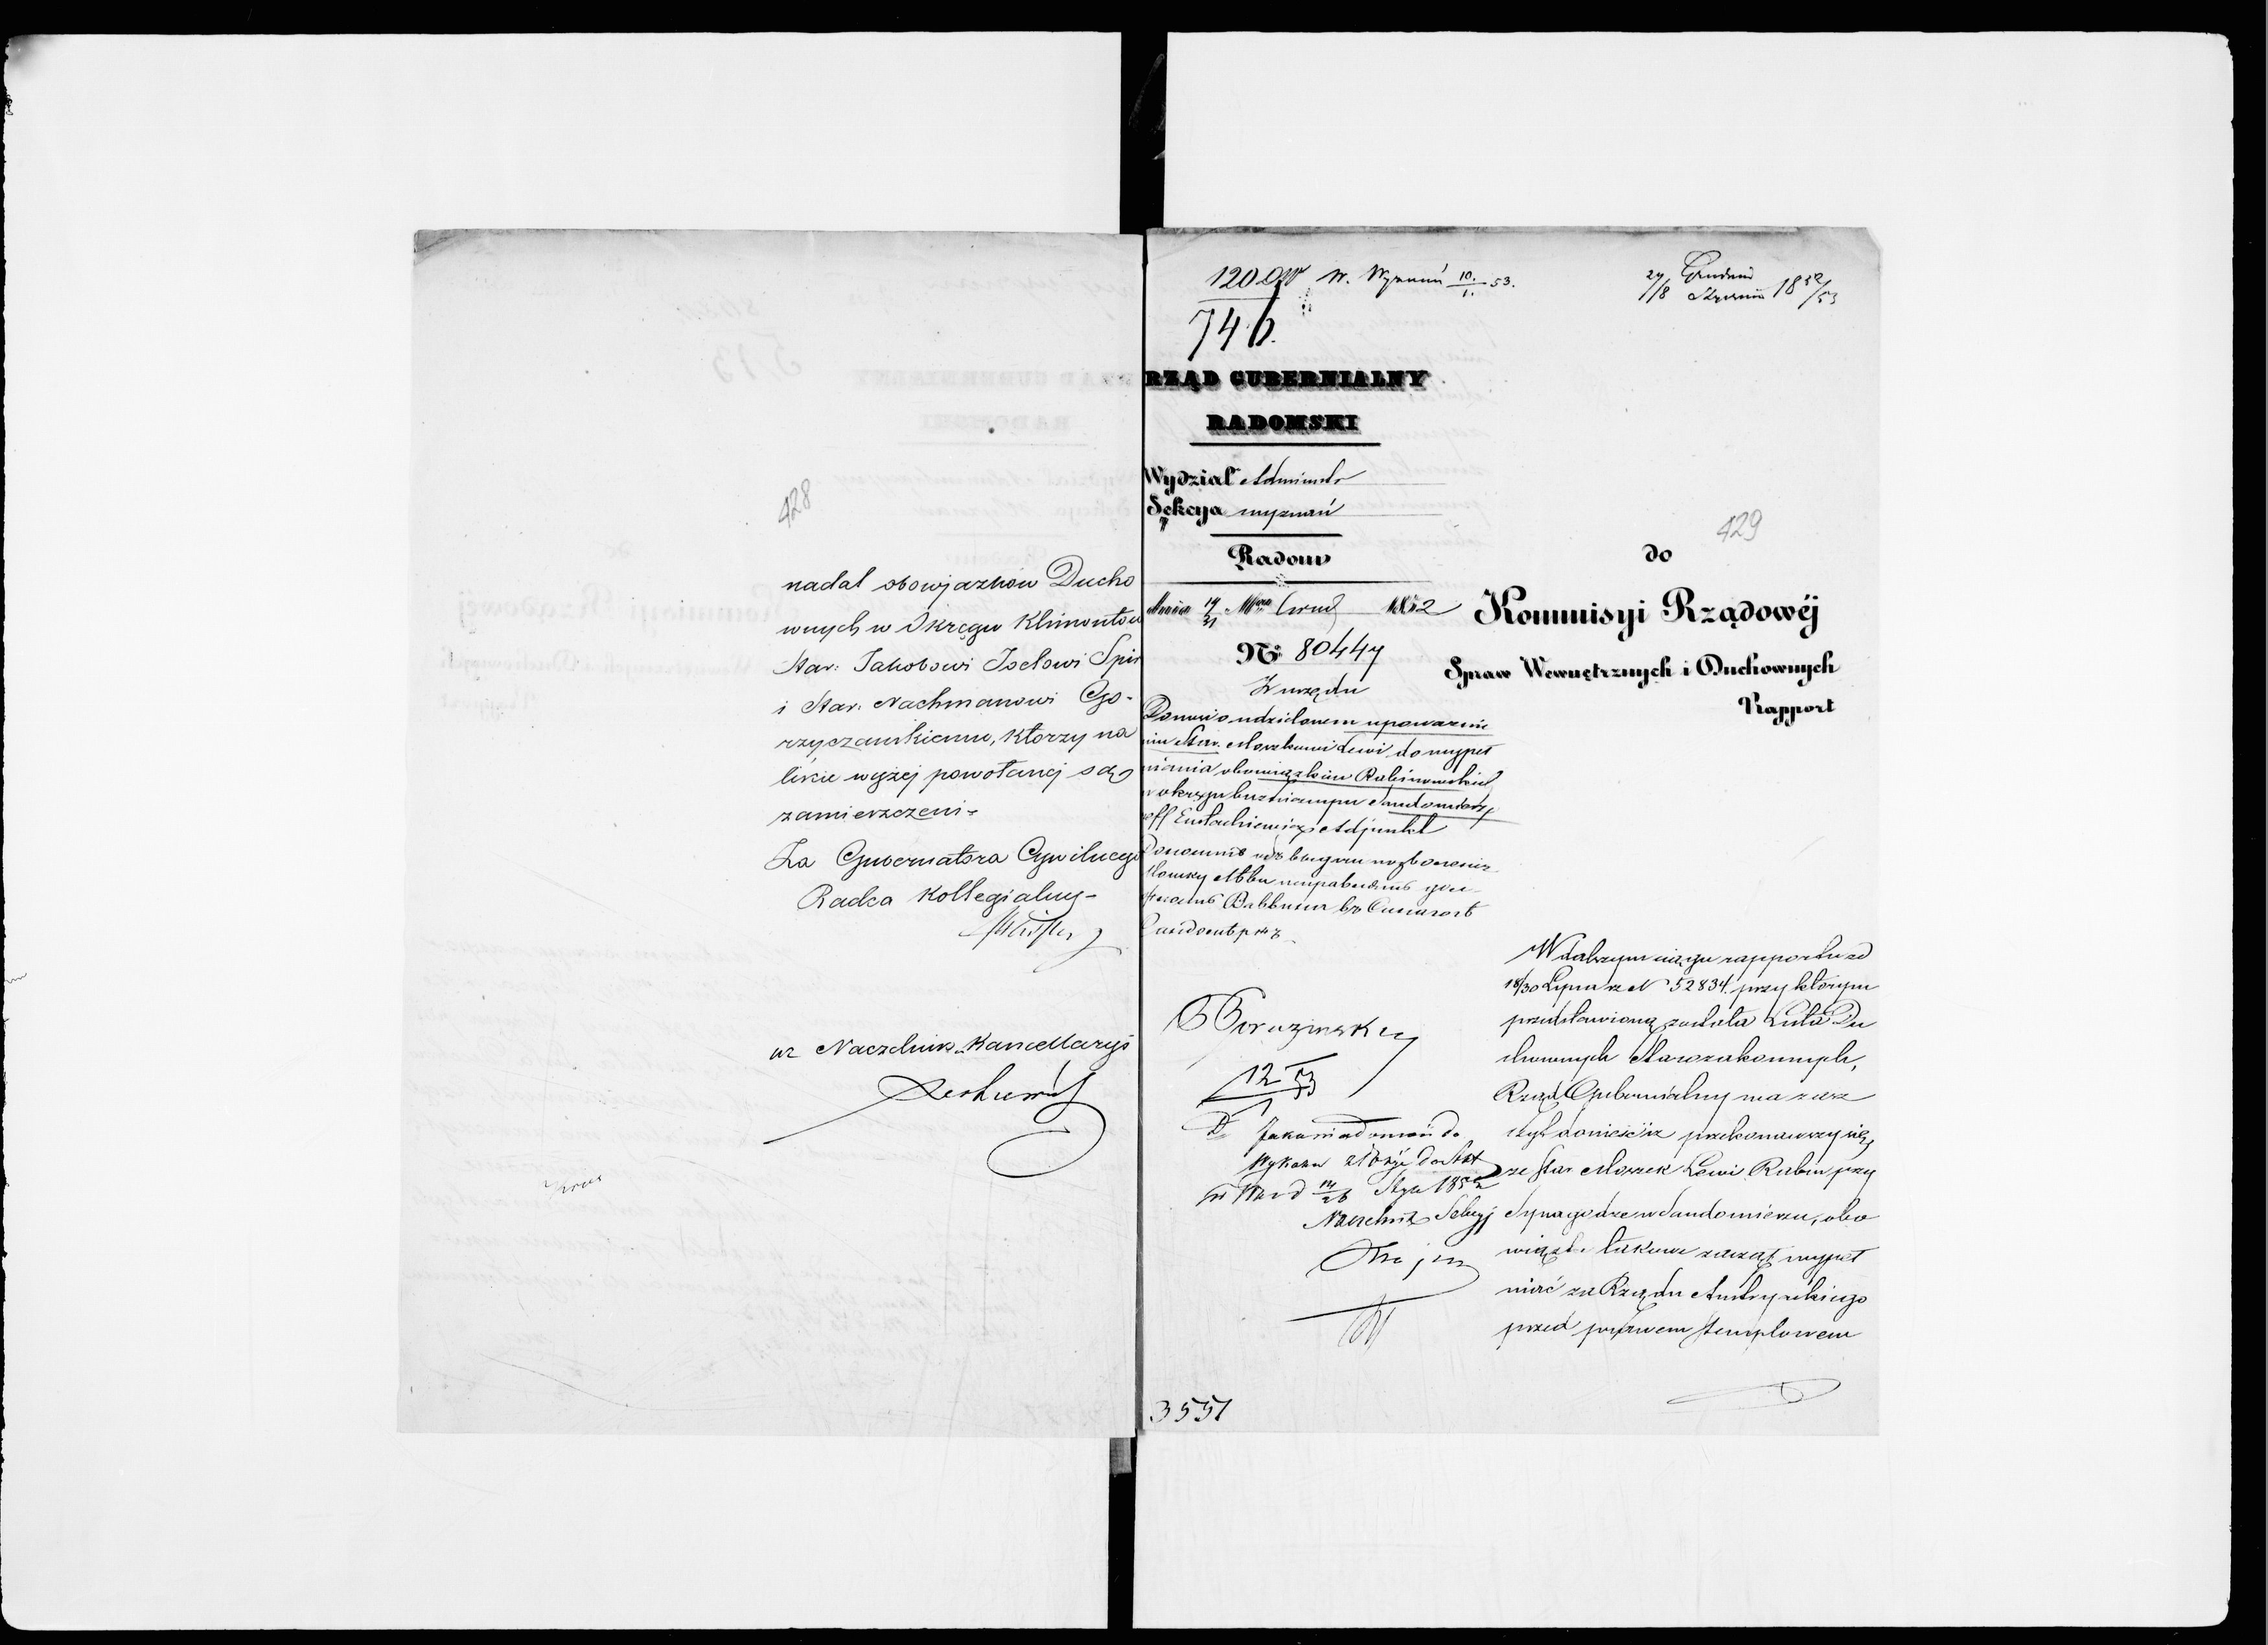 428
nadal obowjazków Ducho
wnych w Okręgu Klimontów
Star: Jakobowi Joelowi Spir
i Star: Nachmanowi Go-
rzyczanskiemu, którzy na
liście wyżej powołanej są
zamieszczeni-
Za Gubernatora Cywilnego
Radca Kollegialny-
wz Naczelnika Kancellaryi
1200
W. Wyznań 10/1. 53.
27/8 Grudnia Stycznia 1852/53
746.
RZĄD GUBERNIALNY
RADOMSKI
Wydział Administr
Sekcya wyznań
Radom
dnia 19/31 Mca Grud 1852
№ 80447
Z urzędu
Donosi o udzielonem upoważnie
niu Star. Moszkowi Lewi do wypeł
niania obowiązków Rabinowskich
w okręgu bużniczym Sandomierz
Adjunkt
12/1 53
Jako wiadomość do
Wykazu złożyć do Akt
w War d 14/26 Stycz 1852
Naczelnik Sekcyj
3551
429
do
Kommisyi Rządowéj
Spraw Wewnętrznych i Duchownych
Rapport
W dalszym ciągu rapportu z d
18/30 Lipca rz N 52834. przy którym
przedstawioną została Lista Du
chownych Starozakonnych,
Rząd Gubernialny ma zasz
czyt donieść iż przekonawszy się,
że Star Moszek Lewi Rabin przy
Synagodze w Sandomierzu, obo
wiązki takowe zaczął wypeł
niać za Rządu Austryackiego
przed prawem stemplowem